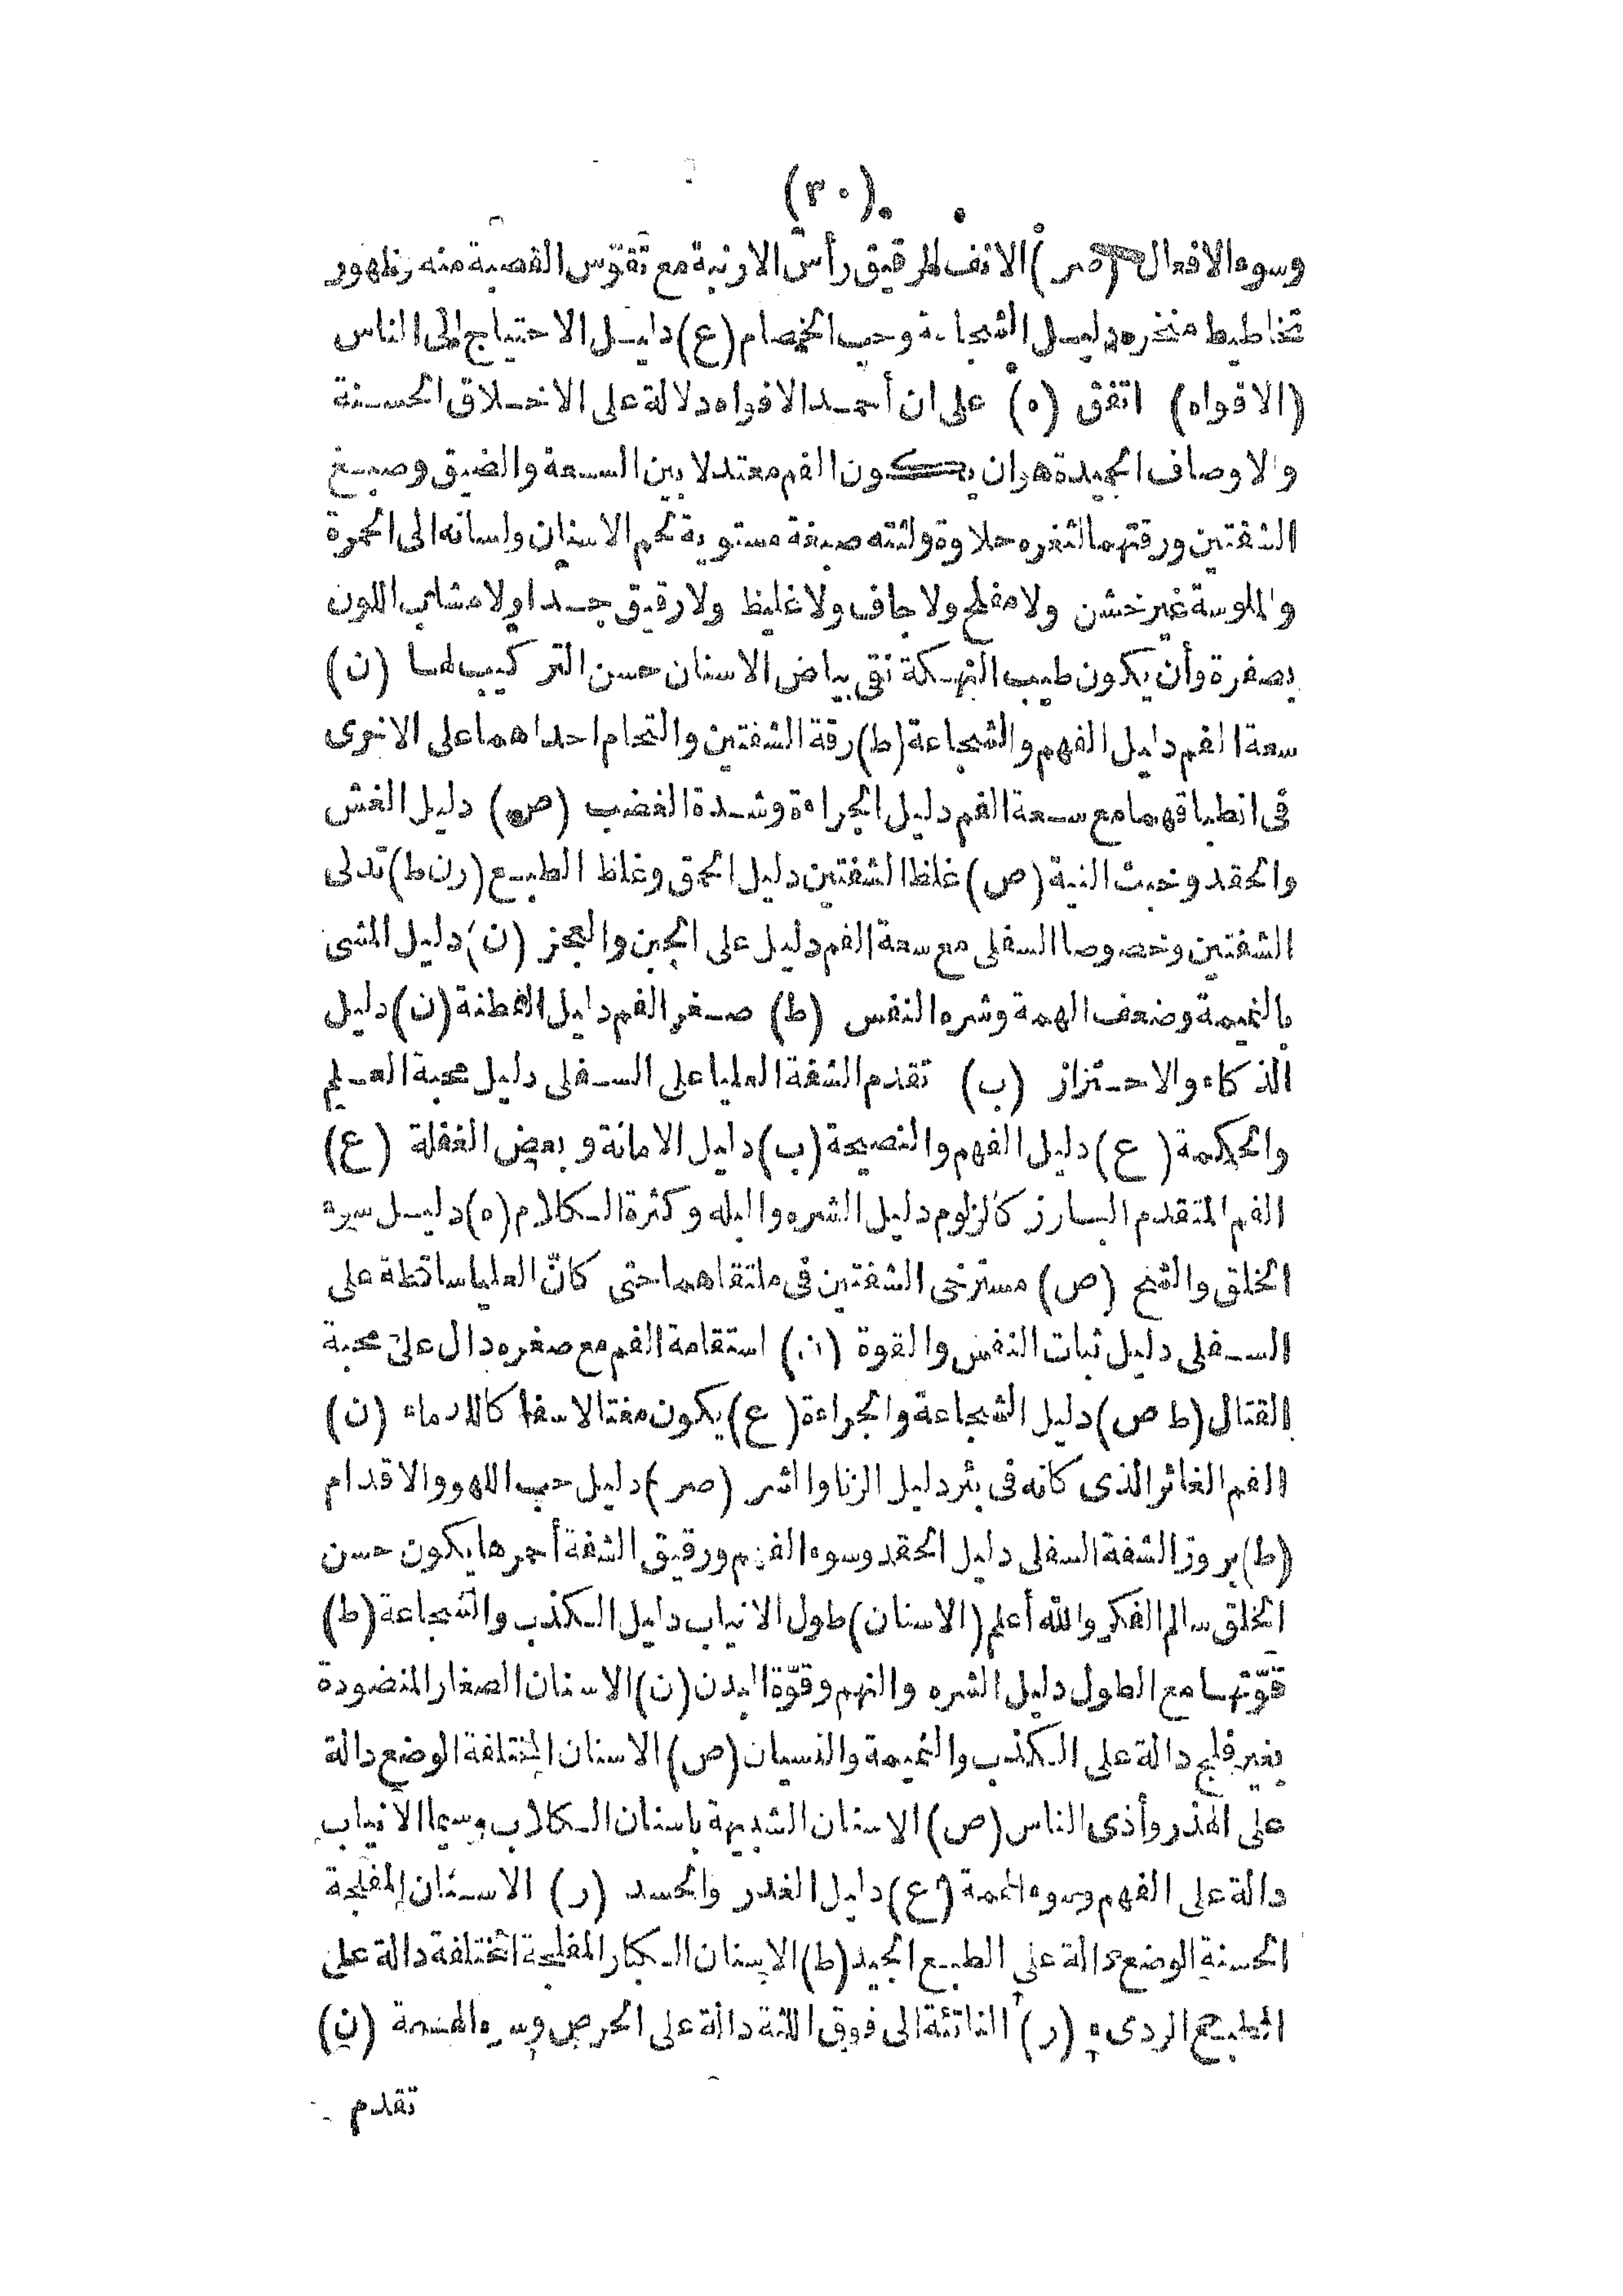 (٣٠)
وسوء الافعال (صر) الانف الرقيق رأس الارنبة مع تقوّس القصبة منه وظهور
تخاطيط منخره دليل الشجاعة وحب الخصام (ع) دليل الاحتياج الى الناس
(الافواه) اتفق (ه) على ان أحمد الافواه دلالة على الاخلاق الحسنة
والاوصاف الجيدة هو ان يكون الفم معتدلا بين السعة والضيق وصبيغ
الشفتين ورقتهما لثغره حلاوة ولثته صبغة مستوية لحم الاسنان ولسانه الى الحمرة
والملوسة غير خشن ولا مفلح ولا جاف ولا غليظ ولا رقيق جدا ولا مشايب اللون
بصفرة وأن يكون طيب النهكة نقى بياض الاسنان حسن التركيب لها (ن)
سعة الفم دليل الفهم والشجاعة (ط) رقة الشفتين والتحام احداهما على الاخرى
فى انطباقهما مع سعة الفم دليل الجراءة وشدة الغضب (ص) دليل الغش
والحقد وخبث النية (ص) غلظ الشفتين دليل الحمق وغلظ الطبع (رن ط) تدلى
الشفتين وخصوصا السفلى مع سعة الفم دليل على الجبن والعجز (ن) دليل المشى
بالنميمة وضعف الهمة وشره النفس (ط) صغر الفم دليل الفطنة (ن) دليل
الذكاء والاحتزاز (ب) تقدم الشفة العليا على السفلى دليل محبة العلم
والحكمة (ع) دليل الفهم والنصيحة (ب) دليل الامانة وبعض الغفلة (ع)
الفم المتقدم البارز كالزلوم دليل الشره والبله وكثرة الكلام (ه) دليل سوء
الخلق والشح (ص) مسترخى الشفتين فى ملتقاهما حتى كانّ العليا ساقطة على
السفلى دليل ثبات النفس والقوة (ن) استقامة الفم مع صغره دال على محبة
القتال (ط ص) دليل الشجاعة والجراءة (ع) يكون مفتالا سفاكا للدماء (ن)
الفم الغائر الذى كانه فى بئر دليل الزنا والشر (صر) دليل حب اللهو والاقدام
(ط) بروز الشفة السفلى دليل الحقد وسوء الفهم ورقيق الشفة أحمرها يكون حسن
الخلق سالم الفكر والله أعلم (الاسنان) طول الانياب دليل الكذب والشجاعة (ط)
قوّتها مع الطول دليل الشره والنهم وقوّة البدن (ن) الاسنان الصغار المنضودة
بغير فلج دالة على الكذب والنميمة والنسيان (ص) الاسنان المختلفة الوضع دالة
على الهذر وأذى الناس (ص) الاسنان الشبيهة باسنان الكلاب وسيما الانياب
دالة على الفهم وسوء الهمة (ع) دليل الغدر والحسد (ر) الاسنان المفلجة
الحسنة الوضع دالة على الطبع الجيد (ط) الاسنان الكبار المفلجة المختلفة دالة على
الطبع الردىء (ر) الناتئة الى فوق اللثة دالة على الحرص وسوء الهضمة (ن)
تقدم